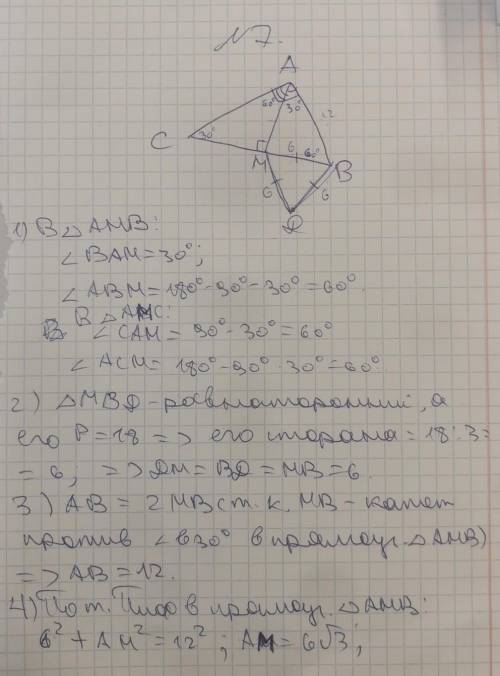 №7.
A
60° 30° 12
C 30° 6 60°
M B
6 6
D
1) В △AMB:
∠BAM = 30°;
∠ABM = 180° - 90° - 30° = 60°.
В △AMC:
∠CAM = 90° - 30° = 60°
∠ACM = 180° - 90° · 30° = 60°
2) △MBD - равносторонний, а
его P = 18 => его сторона = 18 : 3 =
= 6; => DM = BD = MB = 6.
3) AB = 2MB (т.к. MB - катет
против ∠ в 30° в прямоуг. △AMB)
=> AB = 12.
4) По т. Пифа в прямоуг. △AMB:
6² + AM² = 12²; AM = 6√3;